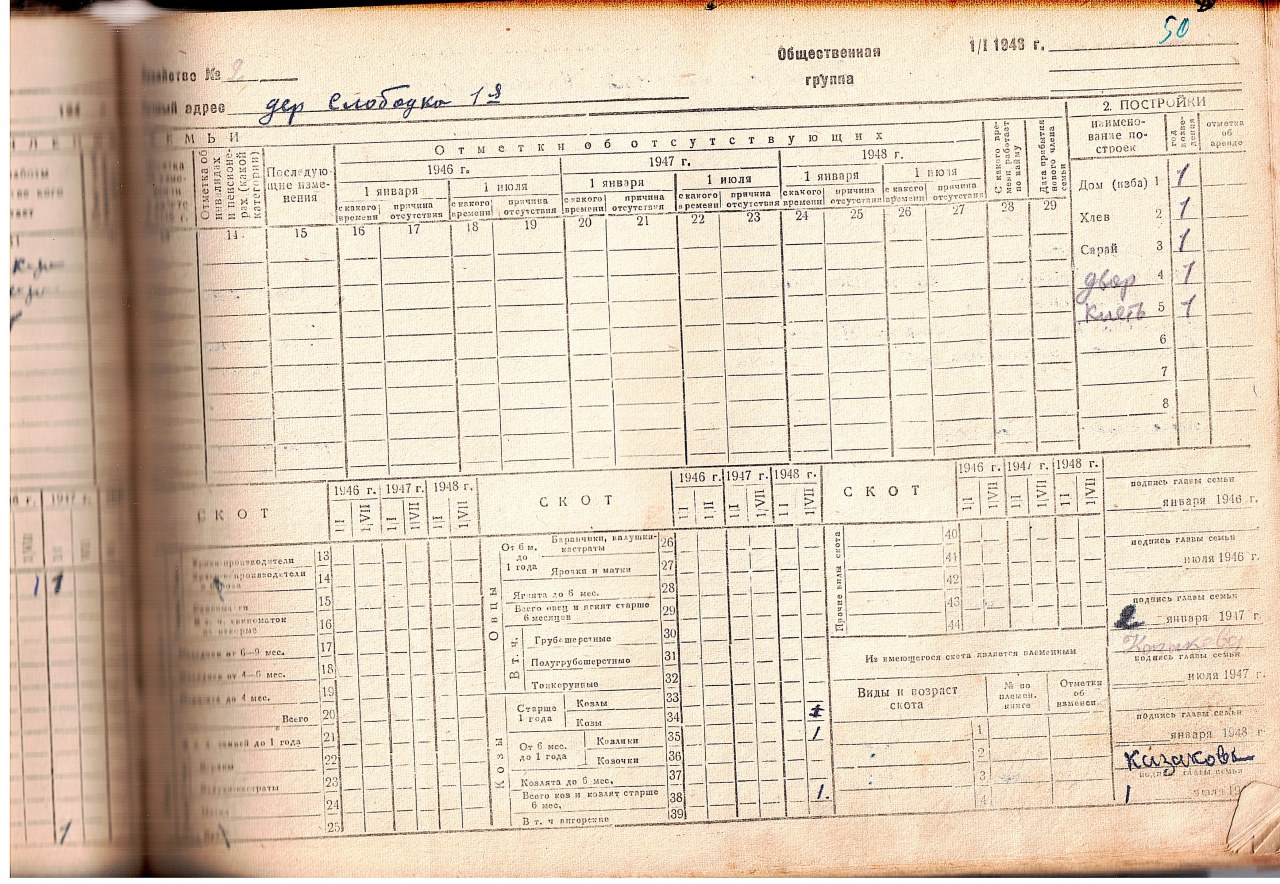 50
Общественная
группа
1/I 1943 г.
№ 2
адрес дер Слободка 1я
194
2. ПОСТРОЙКИ
МЬИ
Отметки об отсутствующих
Отметка об инвалидах и пенсионерах (какой категории)
Последующие изменения
1946 г.
1947 г.
1948 г.
1 января
1 июля
1 января
1 июля
1 января
1 июля
с какого времени
причина отсутствия
с какого времени
причина отсутствия
с какого времени
причина отсутствия
с какого времени
причина отсутствия
с какого времени
причина отсутствия
с какого времени
причина отсутствия
С какого времени работает по найму
Дата прибытия нового члена семьи
наименование построек
год возведения
отметка об аренде
14 15 16 17 18 19 20 21 22 23 24 25 26 27 28 29
Дом (изба) 1 1
Хлев 2 1
Сарай 3 1
двор 4 1
клеть 5 1
6
7
8
СКОТ
1946 г. 1947 г. 1948 г.
1|I 1|VII 1|I 1|VII 1|I 1|VII
13
производители 14
15
16
от 6—9 мес. 17
18
до 4 мес. 19
Всего 20
до 1 года 21
22
23
24
25
СКОТ
1946 г. 1947 г. 1948 г.
1|I 1|VII 1|I 1|VII 1|I 1|VII
Овцы
От 6 м. до 1 года
Баранчики, валушки-кастраты 26
Ярочки и матки 27
Ягнята до 6 мес. 28
Всего овец и ягнят старше 6 месяцев 29
В т. ч.
Грубошерстные 30
Полугрубошерстные 31
Тонкорунные 32
Козы
Старше 1 года
Козлы 33
Козы 34 1
От 6 мес. до 1 года
Козлики 35 1
Козочки 36
Козлята до 6 мес. 37
Всего коз и козлят старше 6 мес. 38 1
В т. ч ангорские 39
СКОТ
1946 г. 1947 г. 1948 г.
1|I 1|VII 1|I 1|VII 1|I 1|VII
Прочие виды скота
40
41
42
43
44
Из имеющегося скота является племенным
Виды и возраст скота
№ по племен. книге
Отметки об изменен.
1
2
3
4
подпись главы семьи
января 1946 г.
подпись главы семьи
июля 1946 г.
подпись главы семьи
января 1947 г.
Казакова
подпись главы семьи
июля 1947 г.
подпись главы семьи
января 1948 г.
Казакова
подпись главы семьи
1 июля